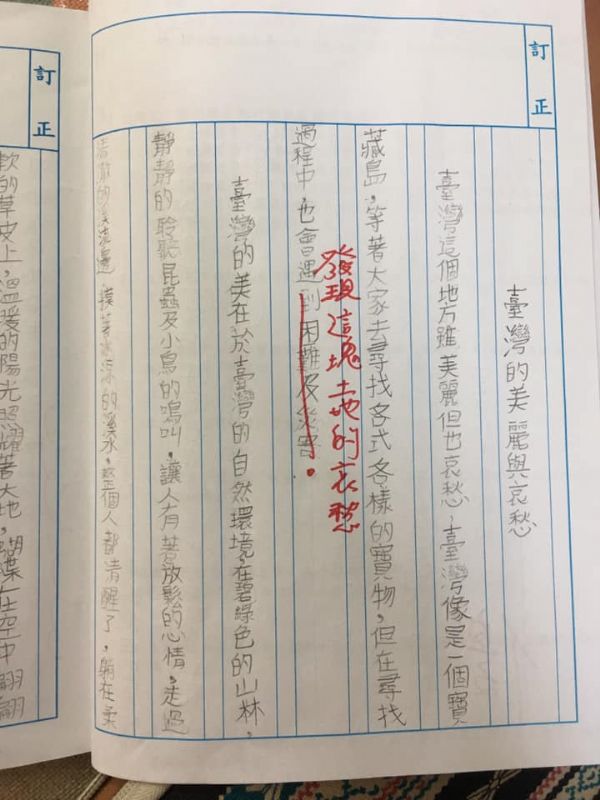 訂正
臺灣的美麗與哀愁
臺灣這個地方雖美麗但也哀愁,臺灣像是一個寶
藏島,等著大家去尋找各式各樣的寶物,但在尋找
過程中,也會遇到困難及災害
發現這塊土地的哀愁。
臺灣的美在於臺灣的自然環境,在碧綠色的山林,
靜靜的聆聽昆蟲及小鳥的鳴叫,讓人有著放鬆的心情,走過
清澈的溪流邊,摸著冰涼的溪水,整個人都清醒了,躺在柔
訂正
軟的草皮上,溫暖的陽光照耀著大地,蝴蝶在空中翩翩